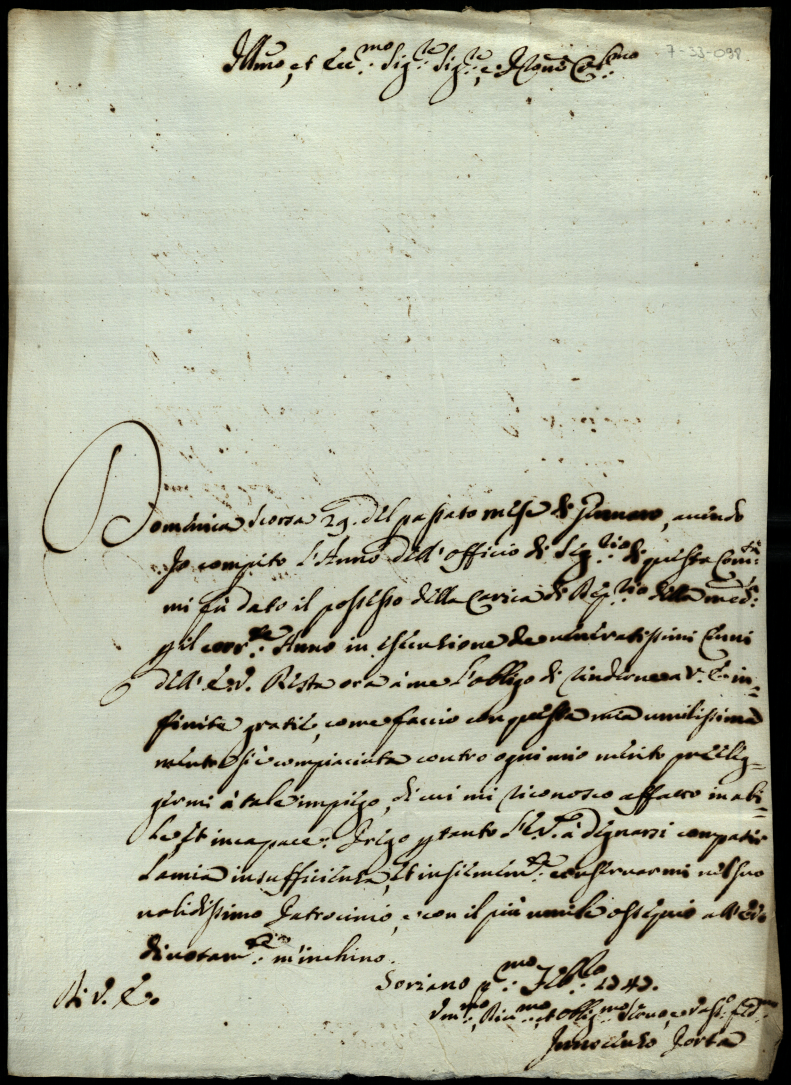 7-33-098
Illmo, et Ecc:mo Sig:re Sig:re, e Pñe Col:mo
Domenica scorsa 29. del passato mese di Gennaro, avendo
Io compito l'Anno dell'officio di Seg:rio di questa Com:tà
mi fù dato il possesso della Carica di della med:a
p il corr:te Anno in esecuzione de veneratissimi Cenni
dell'E.V. Resta ora à me l'obligo di renderne a V.E. in=
finite grazie, come faccio con questa mia umilissima
si è compiaciuta contro ogni mio merito prescieg=
germi à tale impiego, di cui mi riconosco affatto inabi=
le, et incapace. Prego p tanto l'E.V. à degnarsi compatir
la mia insufficienza, et insiemem:te conservarmi nel suo
validissimo Patrocinio, e con il più umile ossequio all'E.V.
divotam:te m'inchino.
Soriano p:mo Febb:o 1747.
Di V. E.
Um:mo, et Oblig:mo Servo, e Vass:o fed:mo
Innocenzo Porta